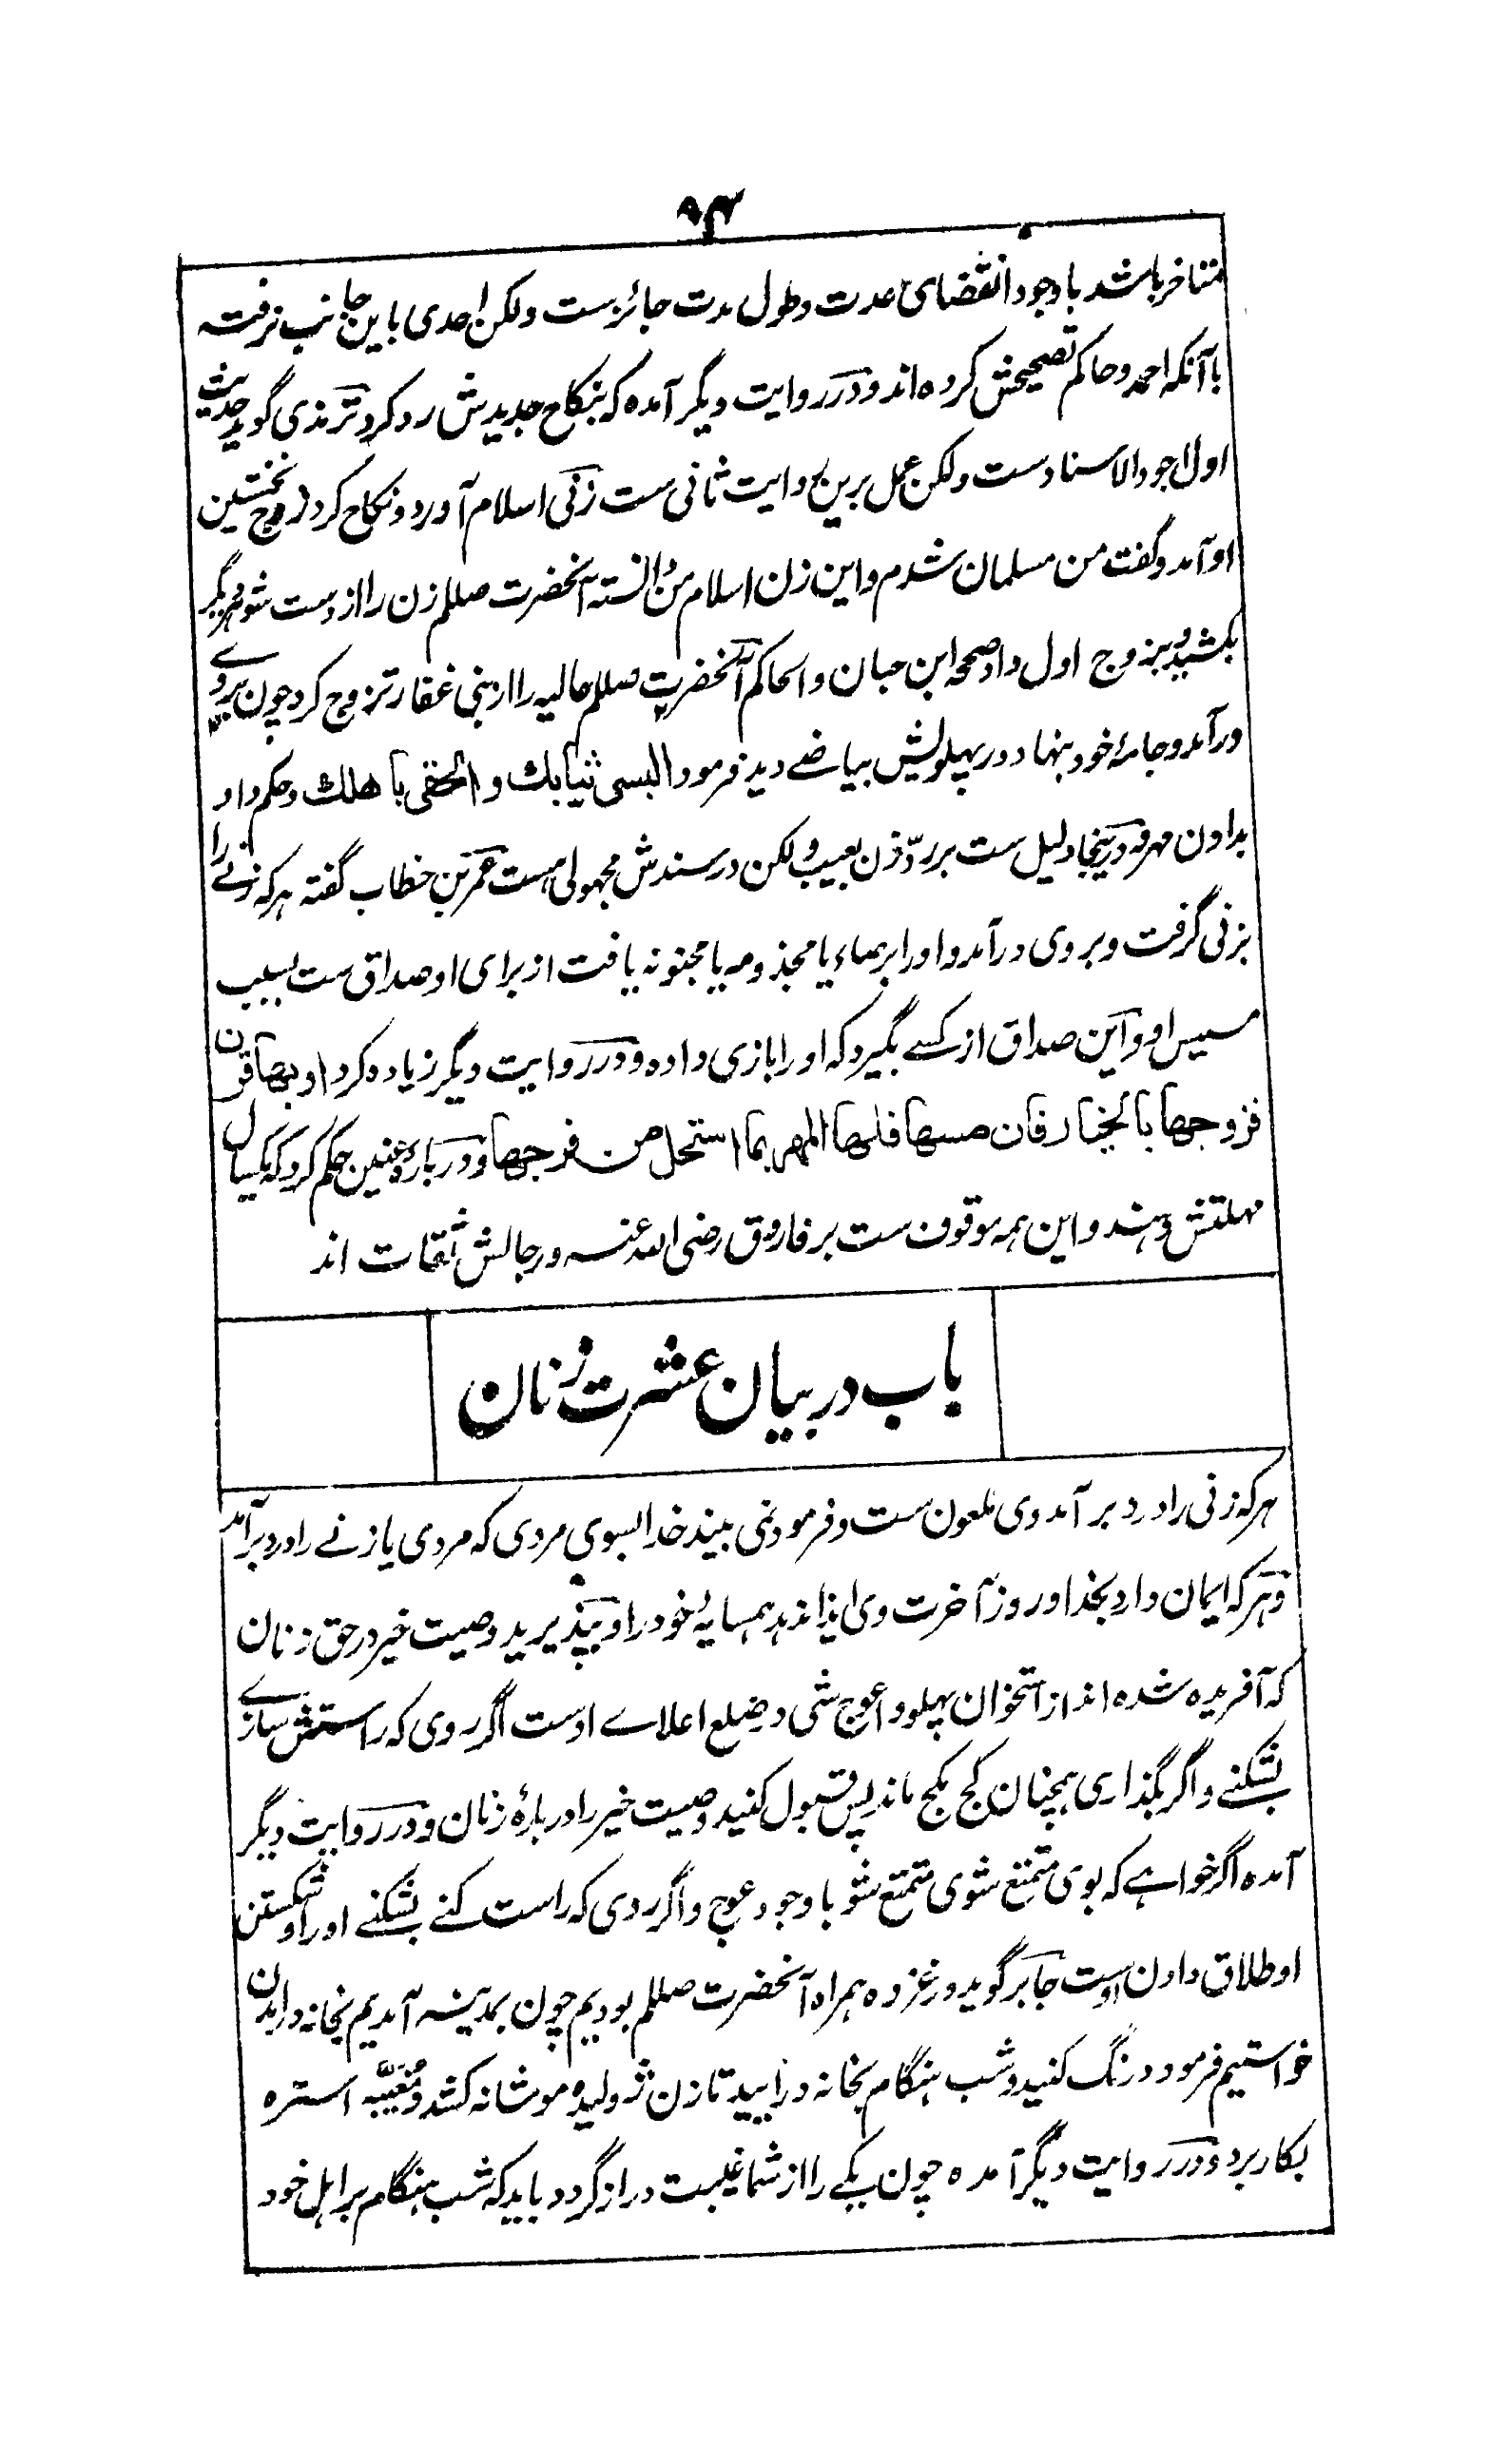 ۹۴
متأخر باشد با وجود انقضای عدت و طول مدت جائزست ولکن احدی باین جانب نرفته
با آنکه احمد و حاکم تصحیحش کرده اند و در روایت دیگر آمده که بنکاح جدیدش رد کرد ترمذی گوید حدیث
اول اجود الاسنادست ولکن عمل برین روایت ثانی ست زنی اسلام آورد و نکاح کرد زوج نخستین
او آمد و گفت من مسلمان شدم و این زن اسلام من دانسته آنحضرت صللم زن را از دست شوهر دیگر
بکشید و بزوج اول داد صححه ابن حبان والحاکم آنحضرت صللم عالیه را از بنی غفار تزوج کرد چون بروے
درآمد و جامهٔ خود بنهاد در پهلویش بیاضے دید فرمود البسی ثیابك والحقی باهلك و حکم داد
بدادن مهر و درینجا دلیل ست بر ردّ زن بعیب ولکن در سندش مجهولی هست عمر بن خطاب گفته هرکه زنے را
بزنی گرفت و بروی درآمد و او را برصاء یا مجذومه یا مجنونه یافت از برای او صداق ست بسبب
مسیس او و این صداق از کسے بگیرد که او را بازی داده و در روایت دیگر زیاده کرد او بها قرن
فزوجها بالخیار فان مسها فلها المهر بما استحل من فرجها و در بارهٔ عنین حکم کرد که یکسال
مهلتش دهند و این همه موقوف ست بر فاروق رضی الله عنه و رجالش ثقات اند
باب در بیان عشرت زنان
هرکه زنی را در دبر آمد وی ملعون ست و فرمود نمی بیند خدا بسوی مردی که مردی یا زنے را در دبر آمد
و هرکه ایمان دارد بخدا و روز آخرت وی ایذا ندهد همسایهٔ خود را و بپذیرید وصیت خیر در حق زنان
که آفریده شده اند از استخوان پهلو و اعوج شی در ضلع اعلاے اوست اگر روی که راستش سازے
بشکنے و اگر بگذاری همچنان کج بکج ماند پس قبول کنید وصیت خیر را دربارهٔ زنان و در روایت دیگر
آمده اگر خواهے که بوی متمتع شوی متمتع شو با وجود عوج و اگر ردی که راست کنے بشکنے او را و شکستن
او طلاق دادن اوست جابر گوید در غزوه همراه آنحضرت صللم بودیم چون بمدینه آمدیم بخانه درآمدن
خواستیم فرمود درنگ کنید و شب هنگام بخانه درآیید تا زن ژولیده مو شانه کشد و مُغَیَّبه استره
بکار برد و در روایت دیگر آمده چون یکے را از شما غیبت دراز گردد باید که شب هنگام بر اهل خود